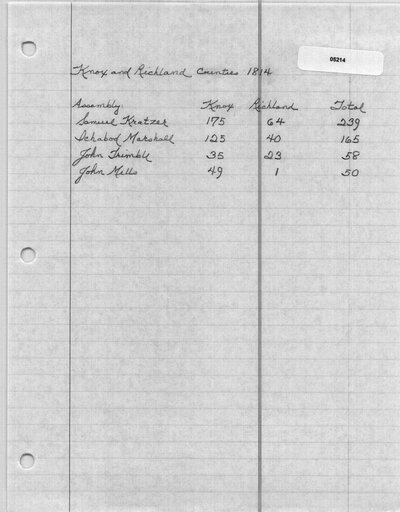 05214
Knox and Richland Counties 1814
Assembly Knox Richland Total
Samuel Kratzer 175 64 239
Ichabod Marshall 125 40 165
John Trimble 35 23 58
John Mills 49 1 50